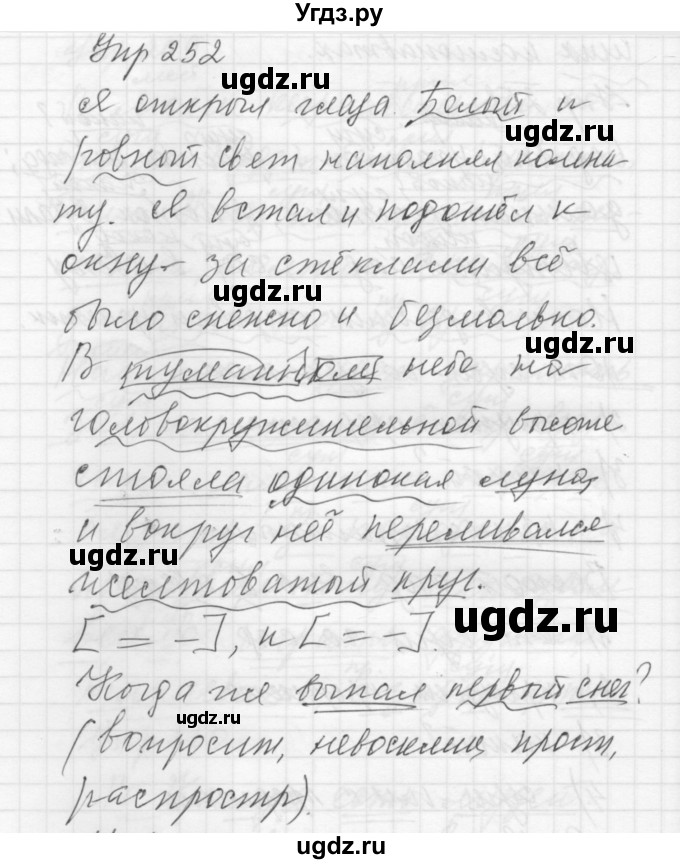 Угдз.ру
Упр 252
ugdz.ru
Я открыл глаза. Белый и
ugdz.ru
ровный свет наполнял комна-
ту. Я встал и подошёл к
окну. За стёклами всё
ugdz.ru
было снежно и безмолвно.
ugdz.ru
В туманном небе на
головокружительной высоте
стояла одинокая луна,
и вокруг неё переливался
ugdz.ru
желтоватый круг.
ugdz.ru
[= -], и [= -].
Когда же выпал первый снег?
ugdz.ru
(вопросит, невосклиц, прост,
распростр).
ugdz.ru